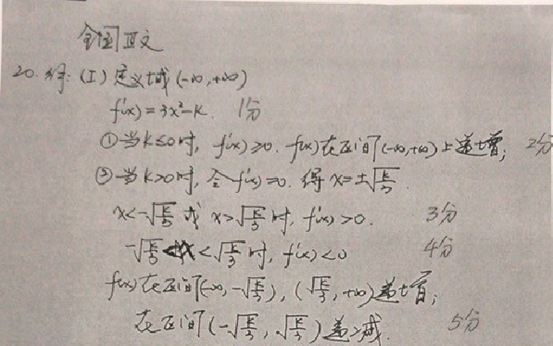 全国Ⅲ文
20. 解: (I) 定义域(-∞,+∞)
f'(x)=3x²-k. 1分
①当k≤0时, f'(x)≥0. f(x)在区间(-∞,+∞)上递增; 2分
②当k>0时, 令f'(x)=0. 得x=±√(k/3).
x<-√(k/3) 或 x>√(k/3)时, f'(x)>0. 3分
-√(k/3)<x<√(k/3)时, f'(x)<0 4分
f(x)在区间(-∞,-√(k/3)), (√(k/3),+∞)递增;
在区间(-√(k/3),√(k/3))递减. 5分